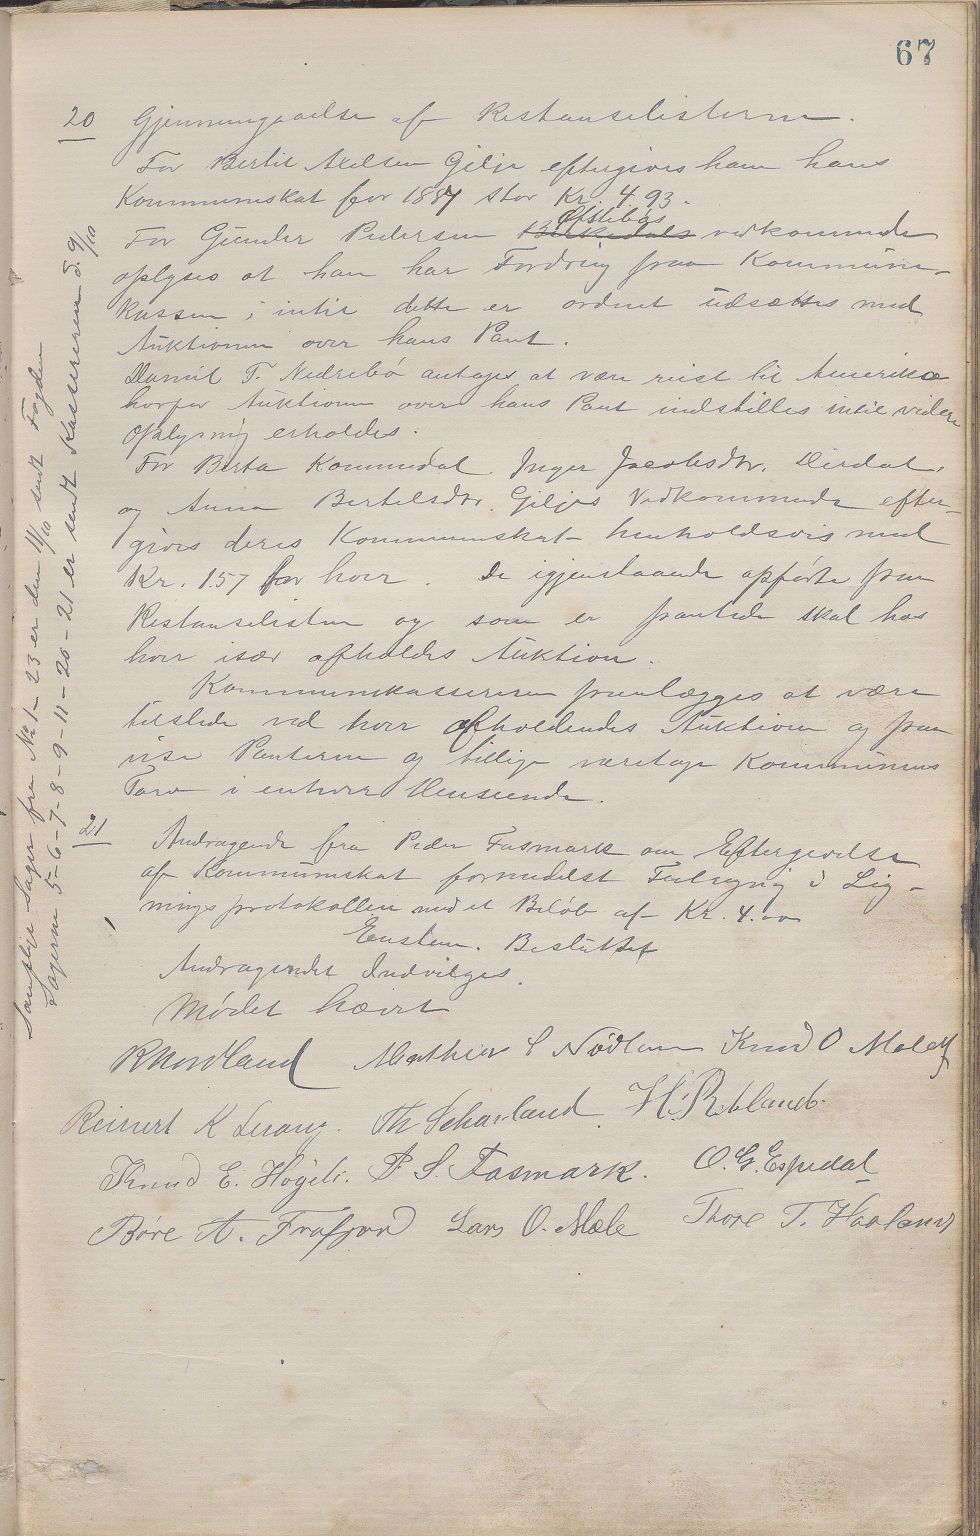 67
20 Gjennemgaaelse af Restanselisterne.
For Bertil Axelsen Gilje eftergives ham hans
Kommuneskat for 1887 stor Kr. 4.93.
Østebøs
For Gunder Pedersen Birkedals vedkommende
oplyses at han har Fordring paa Kommune-
kassen; intil dette er ordnet udsættes med
Auktionen over hans Pant.
Daniel T. Nedrebø antages at være reist til Amerika
horfor Auktionen over hans Pant indstilles intil videre
Oplysning erholdes.
For Berta Kommedal, Inger Jacobsdtr. Dirdal,
og Anna Bertelsdtr. Giljes Vedkommende efter-
gives deres Kommuneskat henholdsvis med
Kr. 1.57 for hver. De igjenstaaende opførte paa
Restanselisten og som er pantede skal hos
hver især afholdes Auktion.
Kommunekassereren paalægges at være
tilstede ved hver afholdendes Auktion og paa
vise Panterne og tillige varetage Kommunens
Tarv i enhver Henseende.
21 Andragende fra Peder Fasmark om Eftergivelse
af Kommuneskat formedelst Feilsyn i Lig-
nings protokollen med et Beløb af Kr. 4.00
Enstem. Besluttet
Andragendet Indvilges.
Mødet hævet
R Nordland Mathias S Nødland Knud O Mele
Reinert K Lerang. Th Schauland H. Rebland.
Knud E. Høgeli. P. S. Fasmark. O. G. Espedal
Tore A. Frafjord Lars O. Mæle Thore T. Haaland
Samtlige Sager fra No 1-23 er den 11/10 sendt Fogden
Sagerne 5-6-7-8-9-11-20-21 er sendt Kassereren d. 9/10